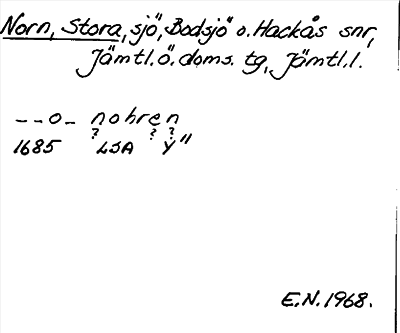 Norn, Stora, sjö, Bodsjö o. Hackås snr,
Jämtl. ö. doms. tg, Jämtl. l.
– – o – nohren
? ? ?
1685 LSA Y"
E.N. 1968.